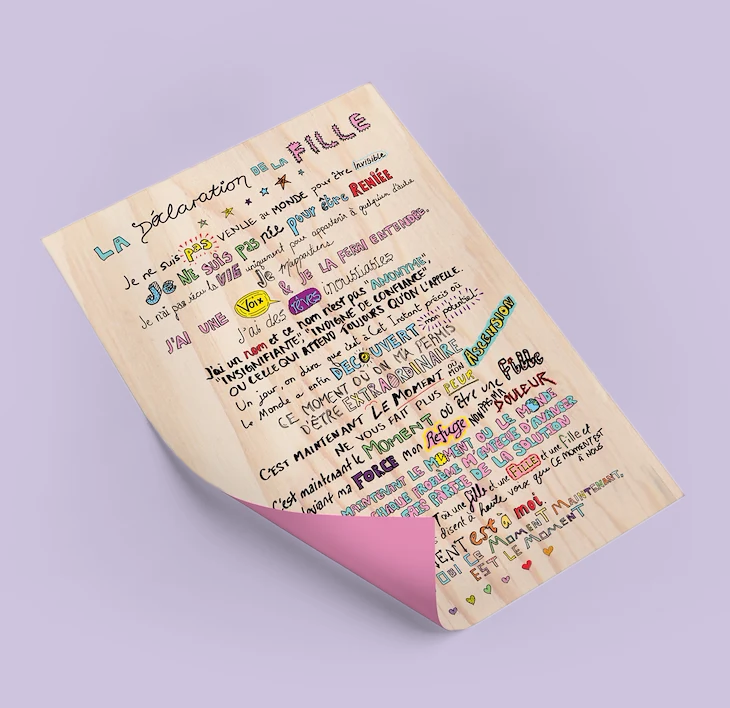 LA Déclaration DE LA FILLE
Je ne suis pas VENUE au MONDE pour être Invisible
Je NE SUIS pas née pour être RENIÉE
Je n'ai pas vécu la VIE uniquement pour appartenir à quelqu'un d'autre
Je m'appartiens
J'AI UNE Voix & JE LA FERAI ENTENDRE.
J'ai des rêves inoubliables
J'ai un nom et ce nom n'est pas "ANONYME"
"INSIGNIFIANTE", "INDIGNE DE CONFIANCE"
OU CELLE QUI ATTEND TOUJOURS QU'ON L'APPELLE.
Un jour, on dira que c'est à Cet Instant précis où
le Monde a enfin DÉCOUVERT mon potentiel!
CE MOMENT OÙ ON M'A PERMIS
D'ÊTRE EXTRAORDINAIRE ASCENSION
C'EST MAINTENANT LE MOMENT où MON
NE VOUS FAIT PLUS PEUR
C'est maintenant le MOMENT où être une Fille
devient ma FORCE mon Refuge NON PAS MA DOULEUR
MAINTENANT LE MOMENT OÙ LE MONDE
CHAQUE PROBLÈME M'EMPÊCHE D'AVANCER
PARTIE DE LA SOLUTION
où une fille et une FILLE et une fille et
disent à haute voix que CE MOMENT EST
À NOUS
est à moi MAINTENANT.
OUI CE MOMENT
EST LE MOMENT